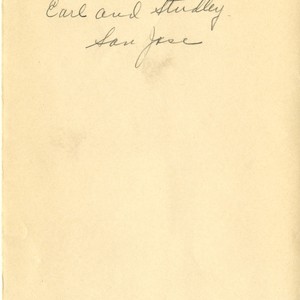 Earl and Studley.
San Jose